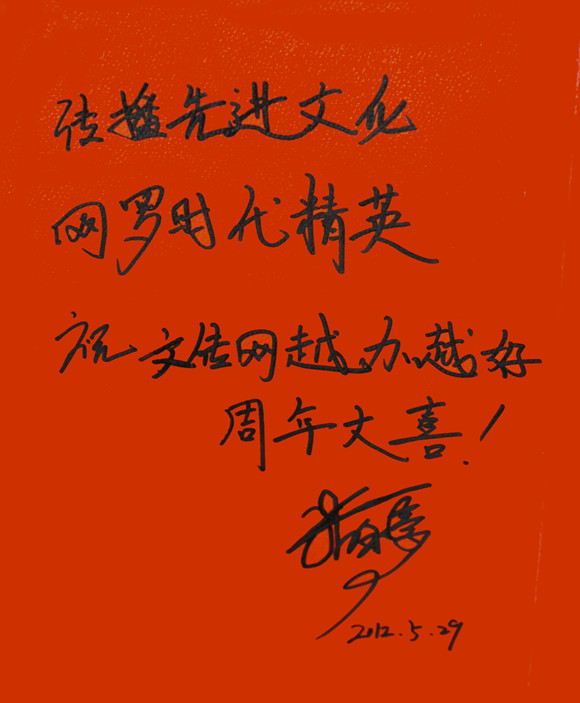 传播先进文化
网罗时代精英
祝文传网越办越好
周年大喜！
2012.5.29